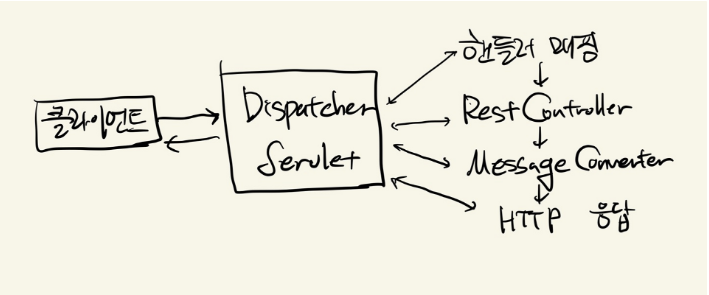 클라이언트
Dispatcher
Servlet
핸들러 매핑
RestController
Message Converter
HTTP 응답